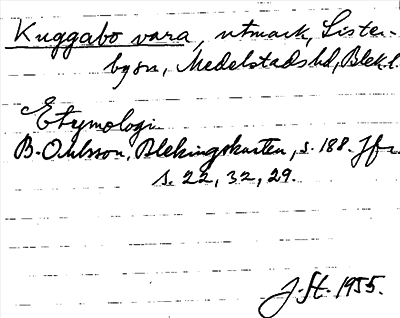 Kuggabo vara, utmark, Sister-
byön, Medelstads hd, Blek.l.
Etymologi
B. Ohlsson, Blekingekusten, s. 188. Jfr
s. 22, 32, 29.
J. St. 1955.